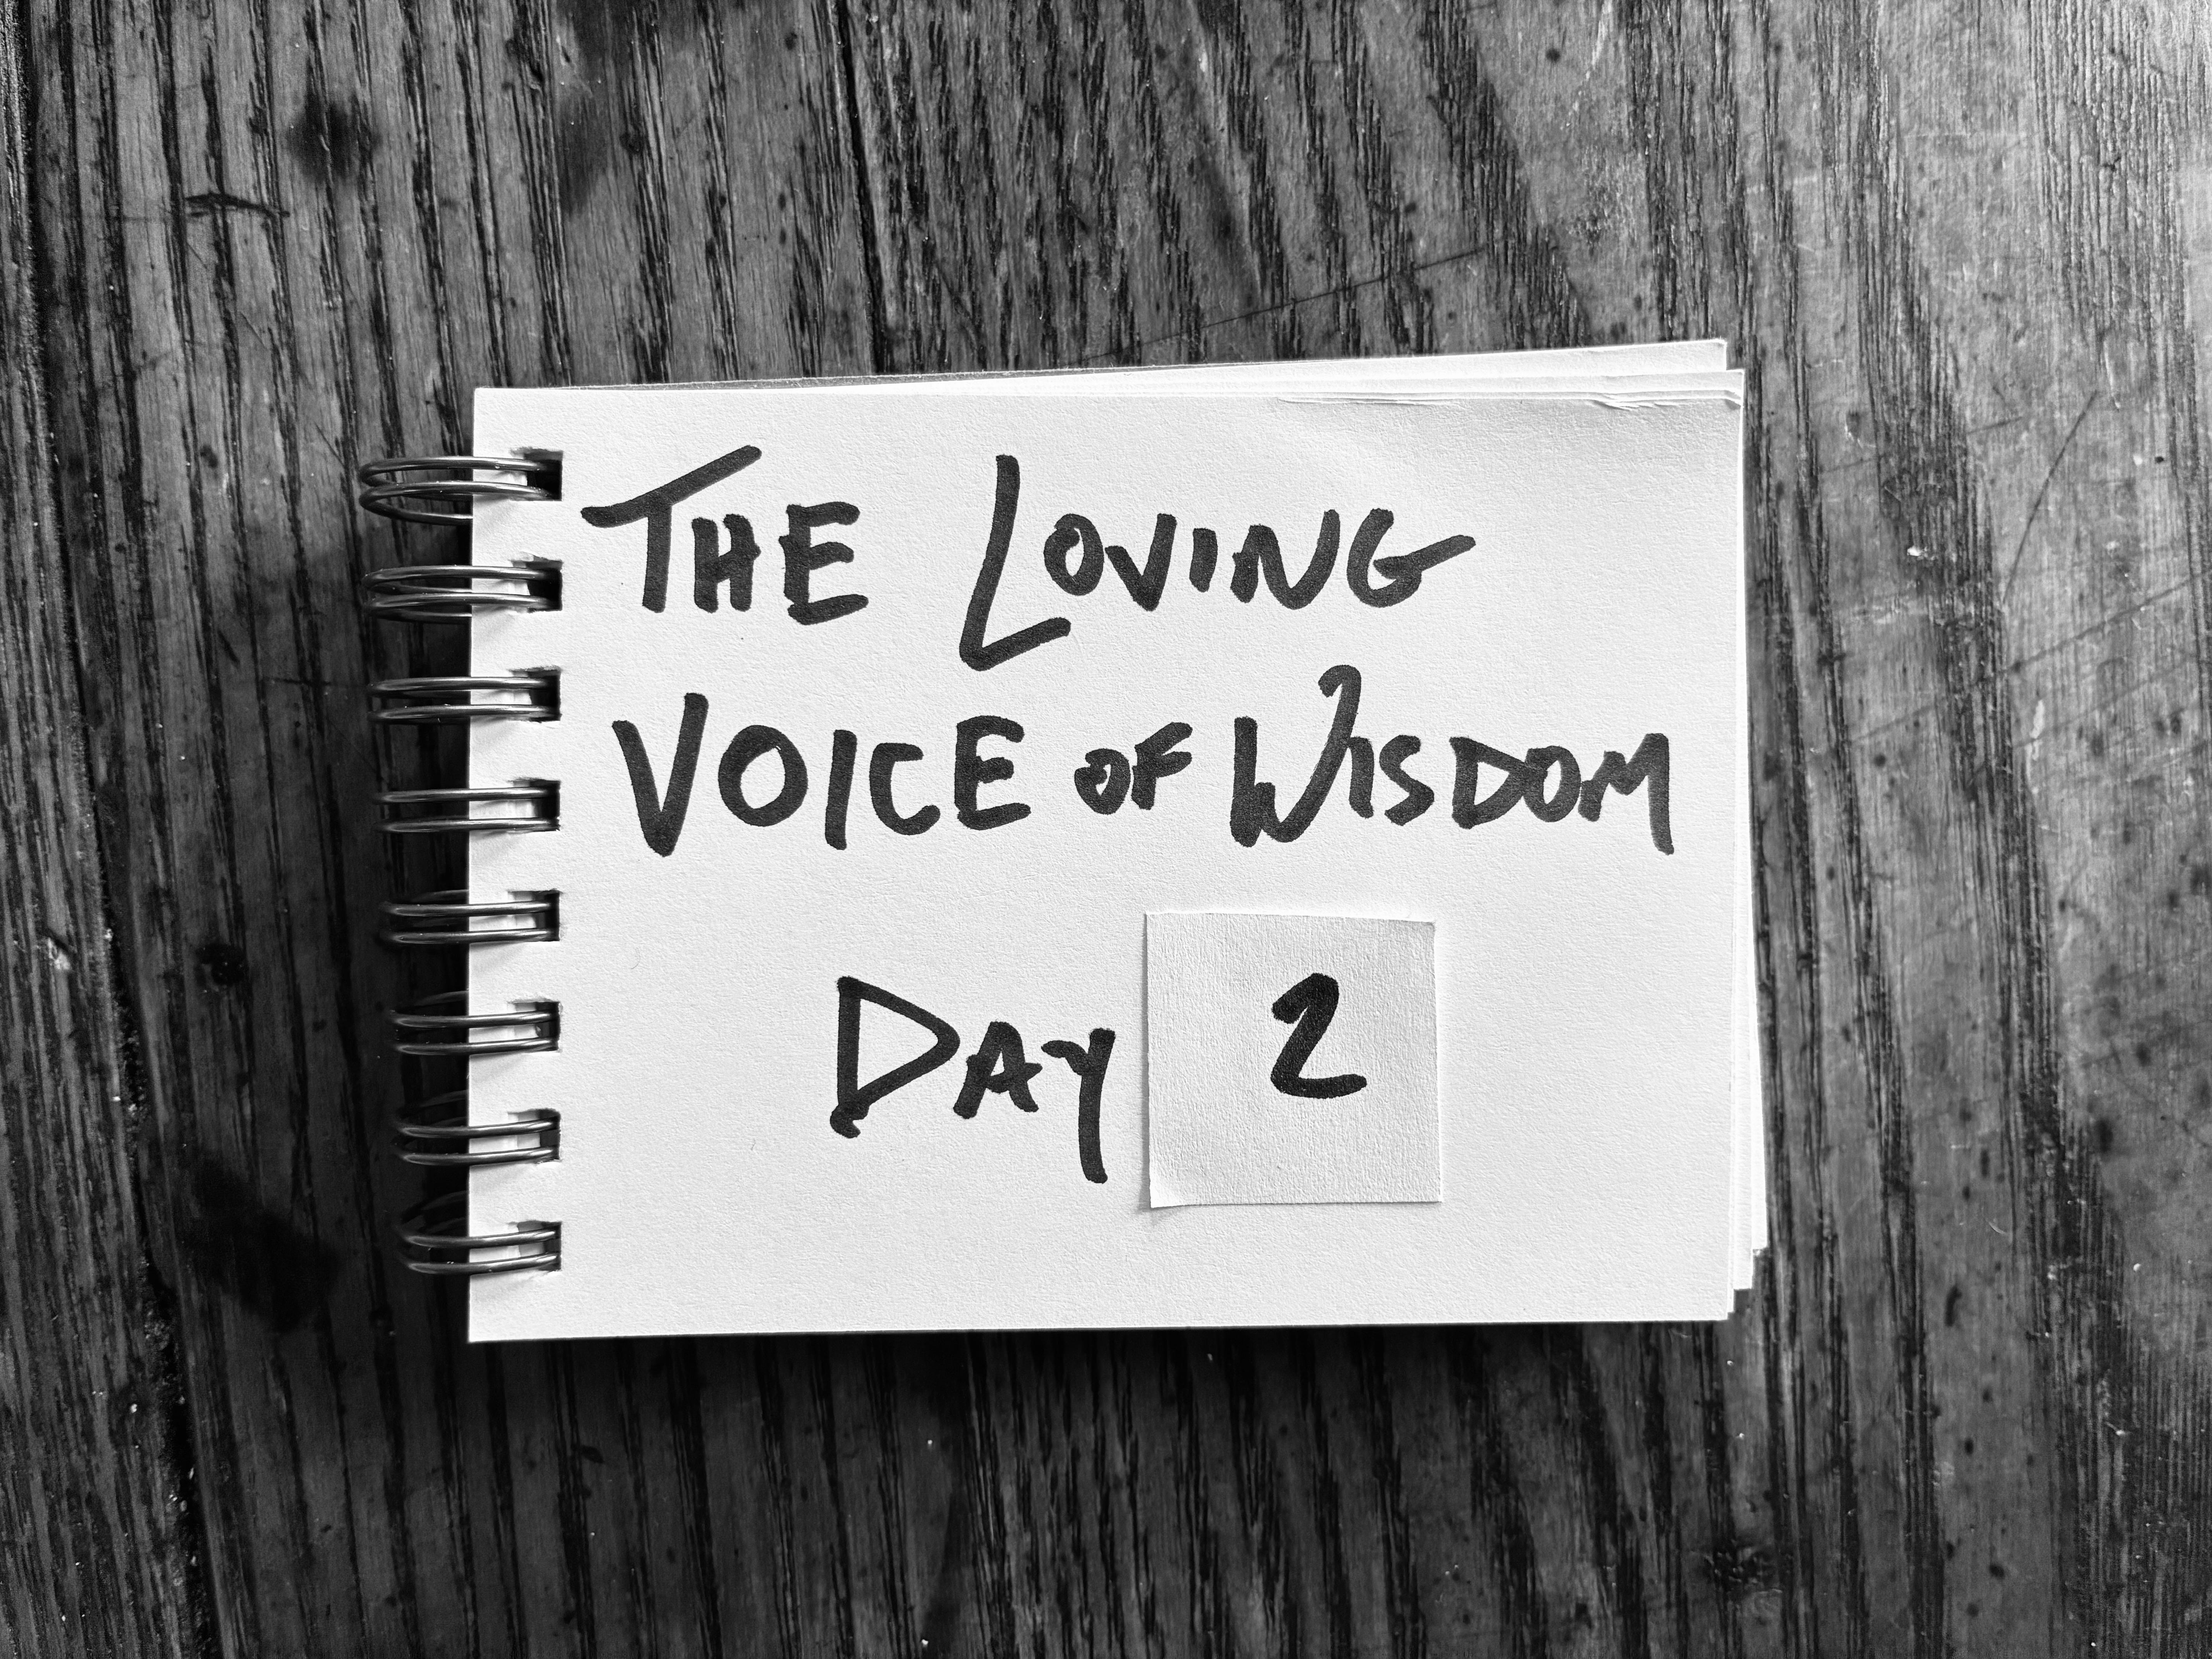 THE LOVING
VOICE OF WISDOM
DAY 2